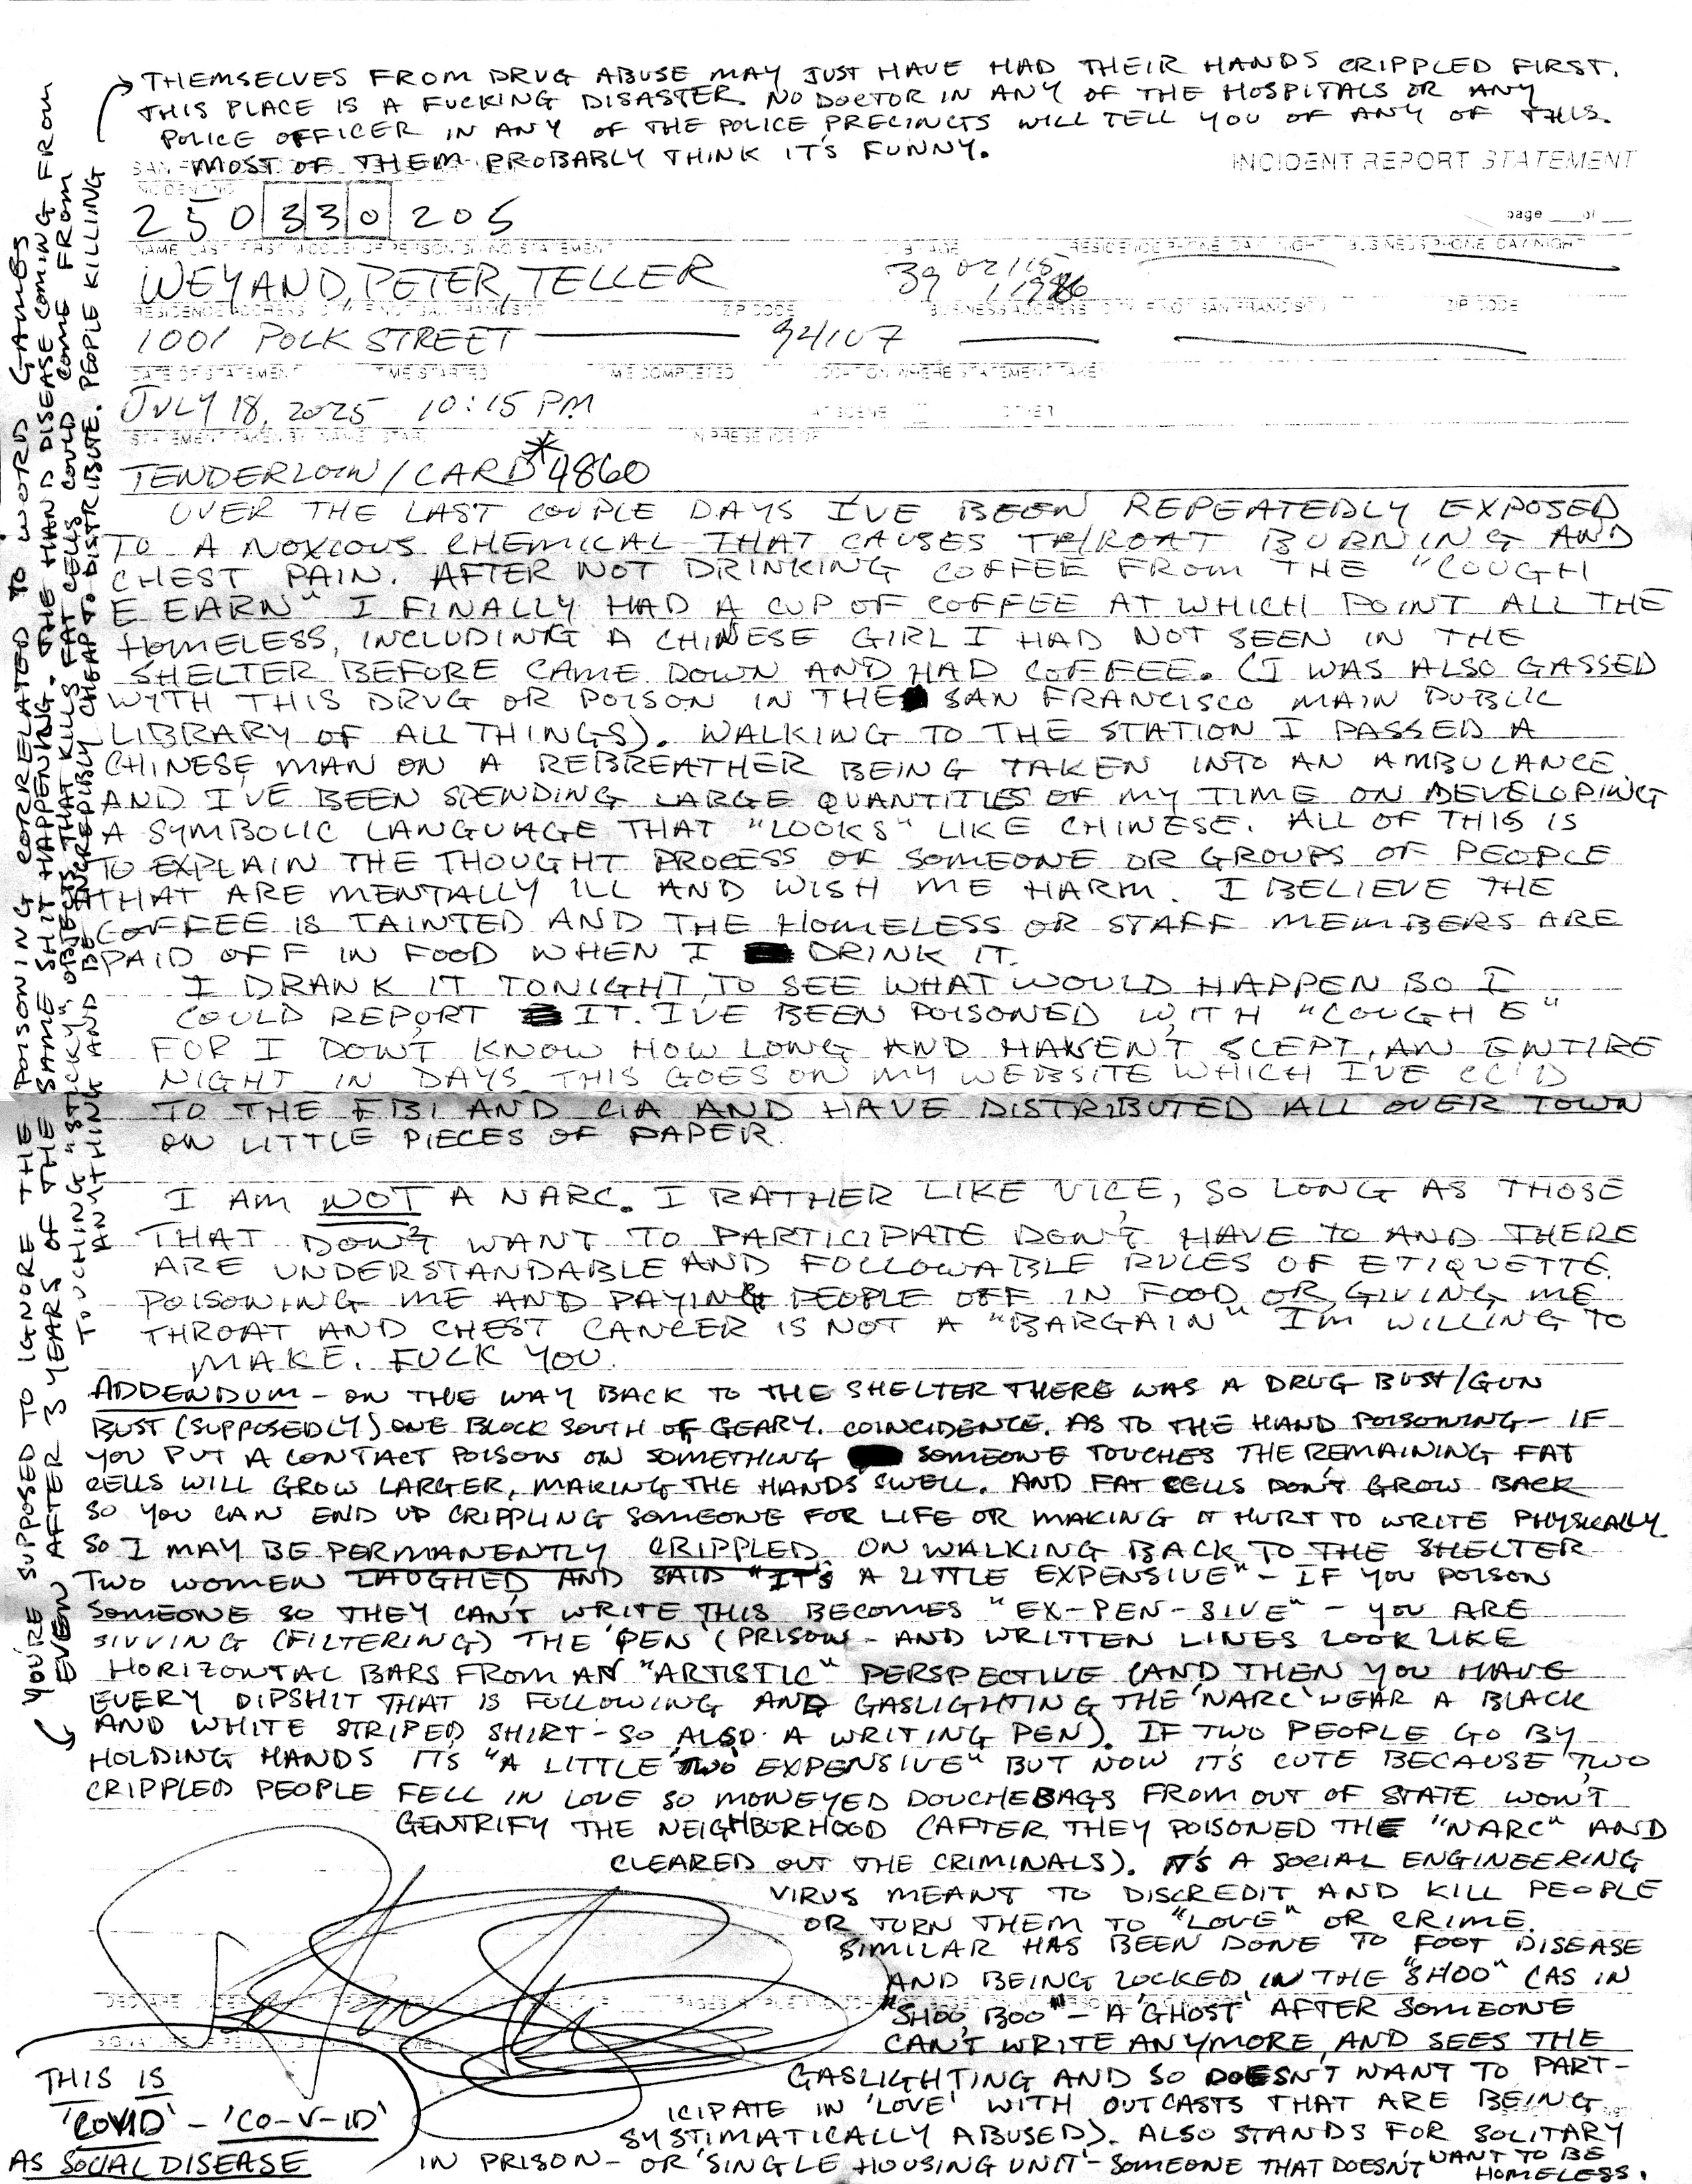 THEMSELVES FROM DRUG ABUSE MAY JUST HAVE HAD THEIR HANDS CRIPPLED FIRST.
THIS PLACE IS A FUCKING DISASTER. NO DOCTOR IN ANY OF THE HOSPITALS OR ANY
POLICE OFFICER IN ANY OF THE POLICE PRECINCTS WILL TELL YOU OF ANY OF THIS.
MOST OF THEM PROBABLY THINK IT'S FUNNY.
INCIDENT REPORT STATEMENT
INCIDENT NO
250330205
page of
NAME LAST FIRST MIDDLE OF PERSON GIVING STATEMENT AGE RESIDENCE PHONE DAY NIGHT BUSINESS PHONE DAY NIGHT
WEYAND, PETER, TELLER 39 02/15/1986
RESIDENCE ADDRESS CITY IF NOT SAN FRANCISCO ZIP CODE BUSINESS ADDRESS CITY IF NOT SAN FRANCISCO ZIP CODE
1001 POLK STREET 94107
DATE OF STATEMENT TIME STARTED TIME COMPLETED LOCATION WHERE STATEMENT TAKEN
JULY 18, 2025 10:15 PM AT SCENE OTHER
STATEMENT TAKEN BY NAME STAR IN PRESENCE OF
TENDERLOIN/CARD *4860
OVER THE LAST COUPLE DAYS I'VE BEEN REPEATEDLY EXPOSED
TO A NOXIOUS CHEMICAL THAT CAUSES THROAT BURNING AND
CHEST PAIN. AFTER NOT DRINKING COFFEE FROM THE "COUGH
E EARN" I FINALLY HAD A CUP OF COFFEE AT WHICH POINT ALL THE
HOMELESS, INCLUDING A CHINESE GIRL I HAD NOT SEEN IN THE
SHELTER BEFORE CAME DOWN AND HAD COFFEE. (I WAS ALSO GASSED
WITH THIS DRUG OR POISON IN THE SAN FRANCISCO MAIN PUBLIC
LIBRARY OF ALL THINGS). WALKING TO THE STATION I PASSED A
CHINESE MAN ON A REBREATHER BEING TAKEN INTO AN AMBULANCE
AND I'VE BEEN SPENDING LARGE QUANTITIES OF MY TIME ON DEVELOPING
A SYMBOLIC LANGUAGE THAT "LOOKS" LIKE CHINESE. ALL OF THIS IS
TO EXPLAIN THE THOUGHT PROCESS OF SOMEONE OR GROUPS OF PEOPLE
THAT ARE MENTALLY ILL AND WISH ME HARM. I BELIEVE THE
COFFEE IS TAINTED AND THE HOMELESS OR STAFF MEMBERS ARE
PAID OFF IN FOOD WHEN I DRINK IT.
I DRANK IT TONIGHT, TO SEE WHAT WOULD HAPPEN SO I
COULD REPORT IT. I'VE BEEN POISONED WITH "COUGH E"
FOR I DON'T KNOW HOW LONG AND HAVEN'T SLEPT AN ENTIRE
NIGHT IN DAYS. THIS GOES ON MY WEBSITE WHICH I'VE CC'D
TO THE FBI AND CIA AND HAVE DISTRIBUTED ALL OVER TOWN
ON LITTLE PIECES OF PAPER.
I AM NOT A NARC. I RATHER LIKE VICE, SO LONG AS THOSE
THAT DON'T WANT TO PARTICIPATE DON'T HAVE TO AND THERE
ARE UNDERSTANDABLE AND FOLLOWABLE RULES OF ETIQUETTE.
POISONING ME AND PAYING PEOPLE OFF IN FOOD OR GIVING ME
THROAT AND CHEST CANCER IS NOT A "BARGAIN" I'M WILLING TO
MAKE. FUCK YOU.
ADDENDUM - ON THE WAY BACK TO THE SHELTER THERE WAS A DRUG BUST/GUN
BUST (SUPPOSEDLY) ONE BLOCK SOUTH OF GEARY. COINCIDENCE. AS TO THE HAND POISONING - IF
YOU PUT A CONTACT POISON ON SOMETHING SOMEONE TOUCHES THE REMAINING FAT
CELLS WILL GROW LARGER, MAKING THE HANDS SWELL. AND FAT CELLS DON'T GROW BACK
SO YOU CAN END UP CRIPPLING SOMEONE FOR LIFE OR MAKING IT HURT TO WRITE PHYSICALLY.
SO I MAY BE PERMANENTLY CRIPPLED. ON WALKING BACK TO THE SHELTER
TWO WOMEN LAUGHED AND SAID "IT'S A LITTLE EXPENSIVE" - IF YOU POISON
SOMEONE SO THEY CAN'T WRITE THIS BECOMES "EX-PEN-SIVE" - YOU ARE
SIVVING (FILTERING) THE 'PEN' (PRISON - AND WRITTEN LINES LOOK LIKE
HORIZONTAL BARS FROM AN "ARTISTIC" PERSPECTIVE (AND THEN YOU HAVE
EVERY DIPSHIT THAT IS FOLLOWING AND GASLIGHTING THE 'NARC' WEAR A BLACK
AND WHITE STRIPED SHIRT - SO ALSO A WRITING PEN). IF TWO PEOPLE GO BY
HOLDING HANDS ITS "A LITTLE 'TWO' EXPENSIVE" BUT NOW IT'S CUTE BECAUSE TWO
CRIPPLED PEOPLE FELL IN LOVE SO MONEYED DOUCHEBAGS FROM OUT OF STATE WON'T
GENTRIFY THE NEIGHBORHOOD (AFTER THEY POISONED THE "NARC" AND
CLEARED OUT THE CRIMINALS). IT'S A SOCIAL ENGINEERING
VIRUS MEANT TO DISCREDIT AND KILL PEOPLE
OR TURN THEM TO "LOVE" OR CRIME.
SIMILAR HAS BEEN DONE TO FOOT DISEASE
AND BEING LOCKED IN THE "SHOO" (AS IN
"SHOO BOO" - A 'GHOST' AFTER SOMEONE
CAN'T WRITE ANYMORE, AND SEES THE
GASLIGHTING AND SO DOESN'T WANT TO PART-
ICIPATE IN 'LOVE' WITH OUTCASTS THAT ARE BEING
SYSTIMATICALLY ABUSED). ALSO STANDS FOR SOLITARY
IN PRISON - OR 'SINGLE HOUSING UNIT' - SOMEONE THAT DOESN'T WANT TO BE
HOMELESS.
THIS IS
'COVID' - 'CO-V-ID'
AS SOCIAL DISEASE
YOU'RE SUPPOSED TO IGNORE THE POISONING CORRELATED TO WORD GAMES
EVEN AFTER 3 YEARS OF THE SAME SHIT HAPPENING. THE HAND DISEASE COMING FROM
TOUCHING "STICKY" OBJECTS THAT KILLS FAT CELLS COULD COME FROM
ANYTHING AND BE INCREDIBLY CHEAP TO DISTRIBUTE. PEOPLE KILLING